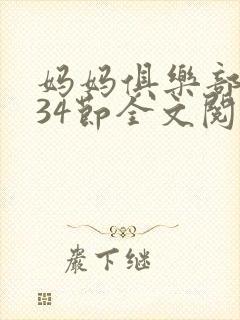 妈妈俱樂部
34節全文閱
嚴下继